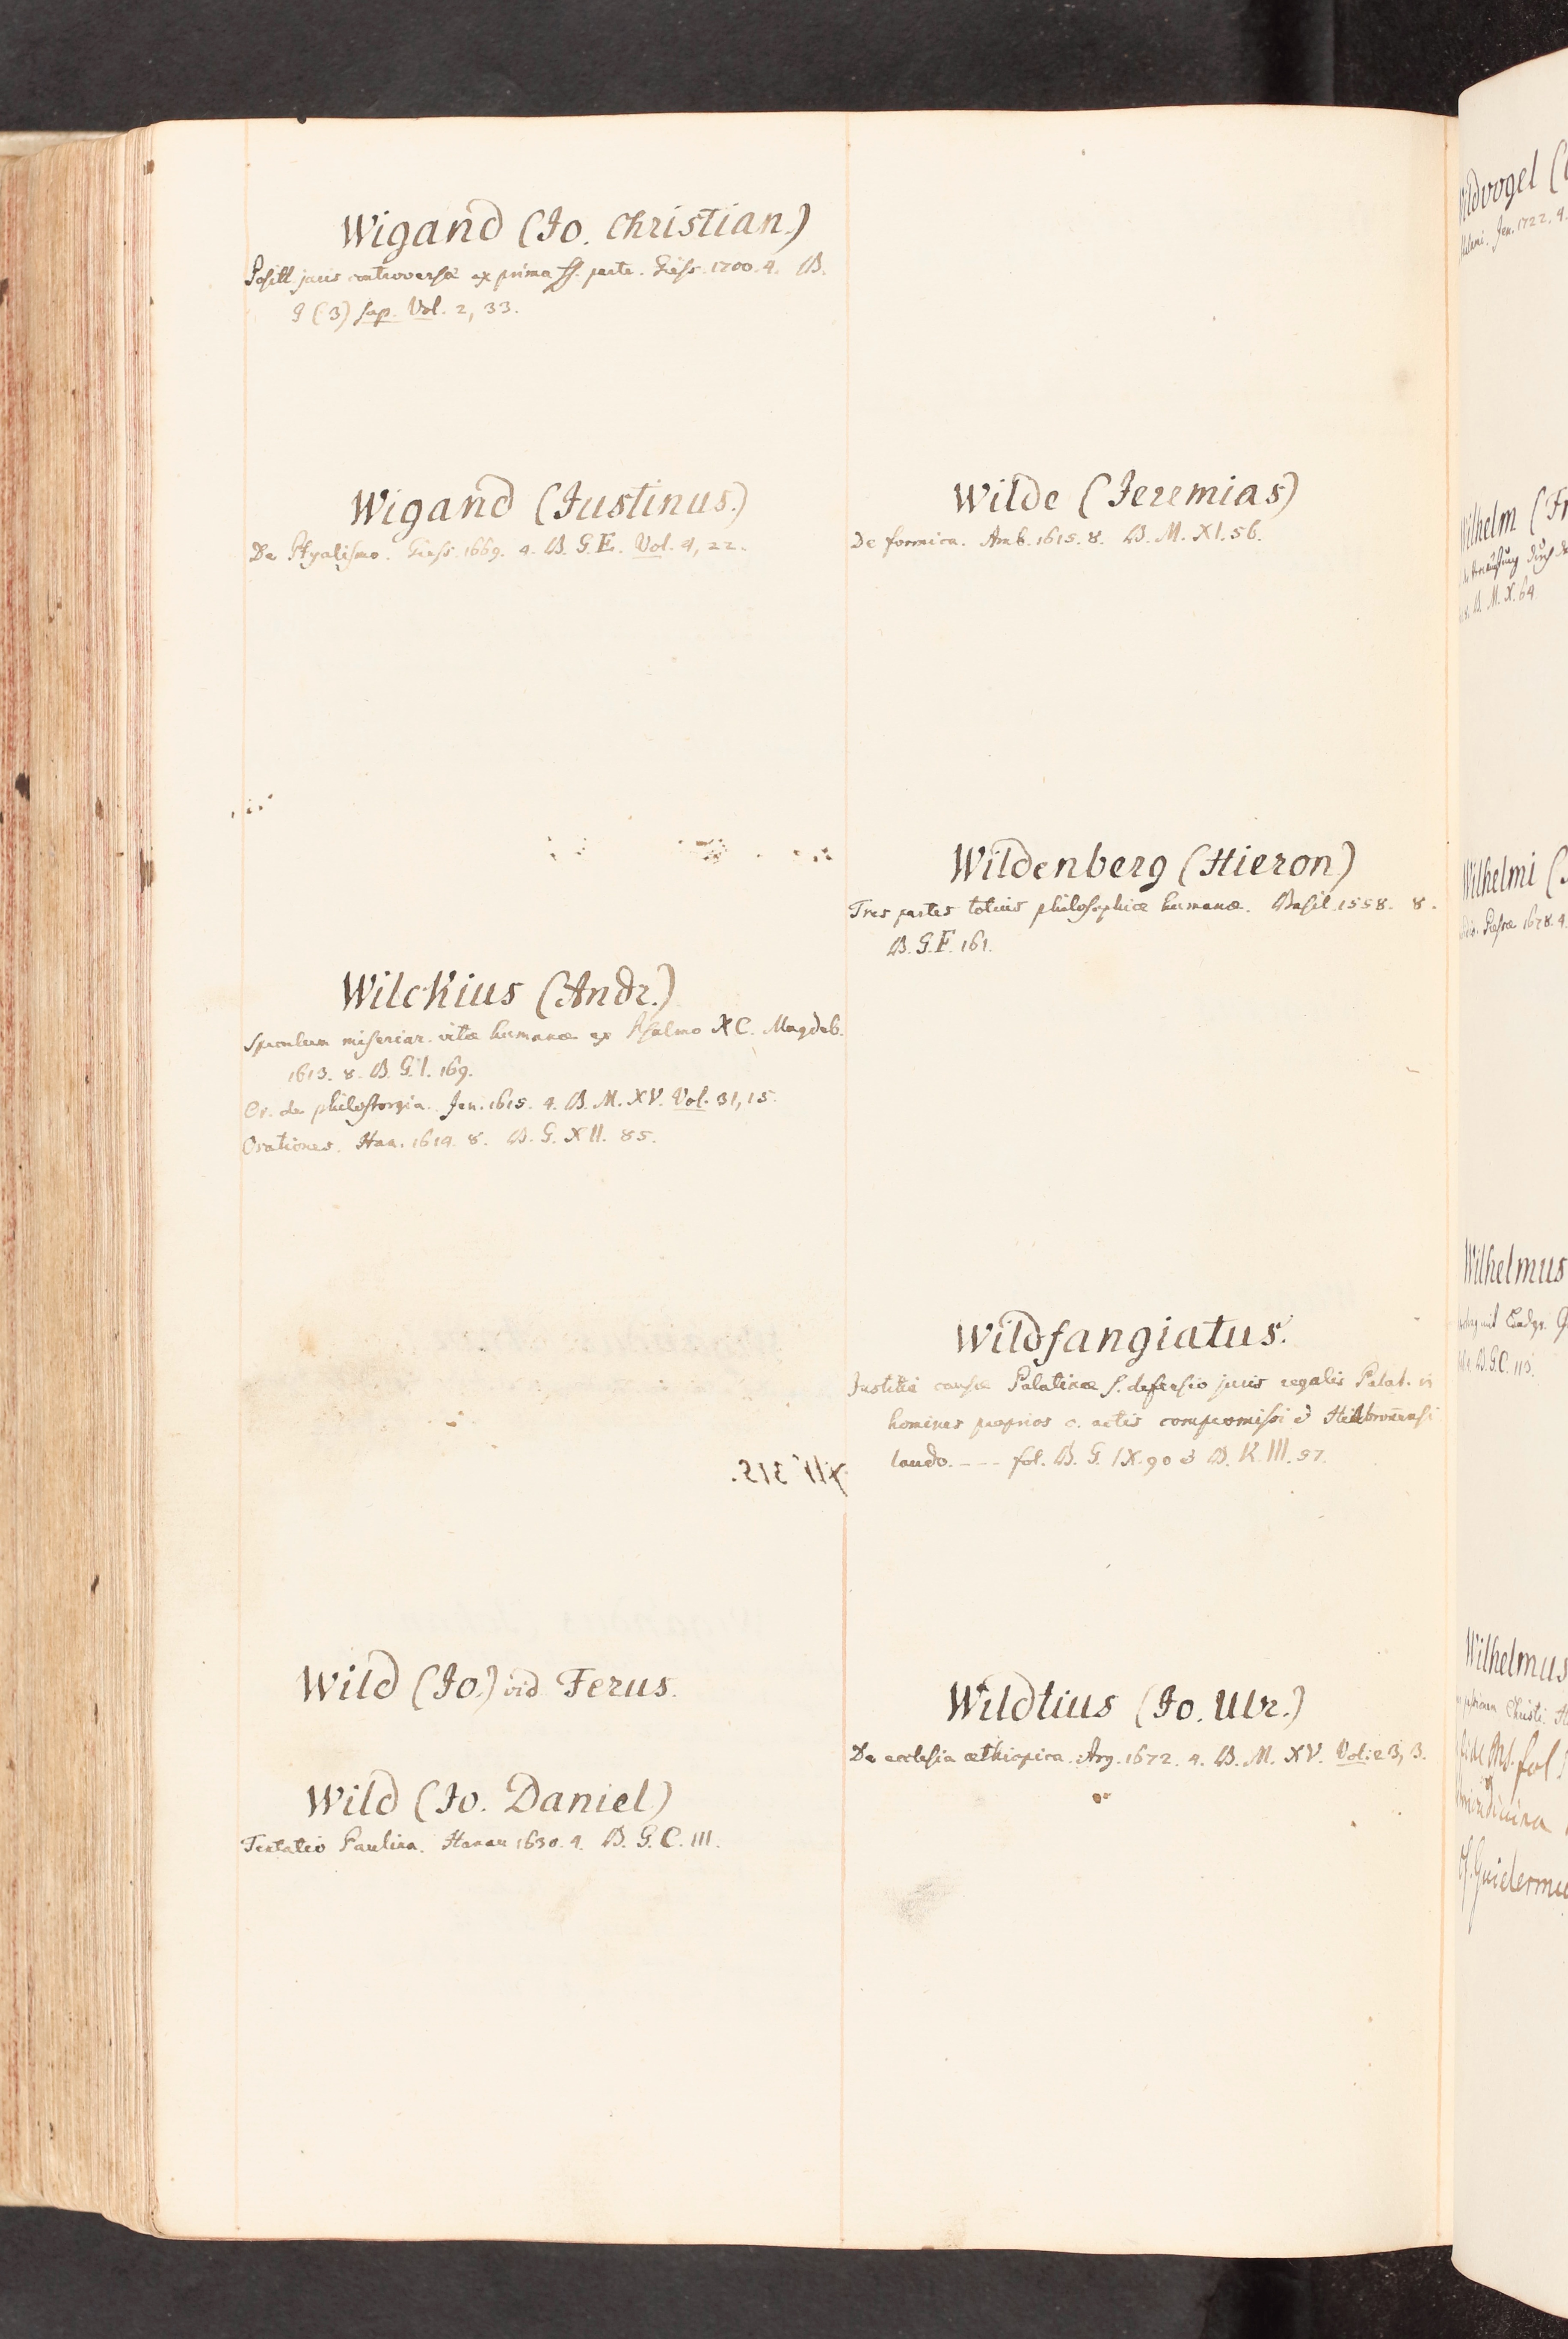 Wigand (Jo. Christian.)
Positt. juris controversi ex prima ff. parte. Giess. 1700. 4. B.
G (3) sap. Vol. 2, 33.
Wigand (Justinus.)
De Ptyalismo. Giess. 1669. 4. B. G. E. Vol. 4, 22.
Wilckius (Andr.)
Speculum miseriar. vitæ humanæ ex Psalmo XC. Magdeb.
1613. 8. B. G. I. 169.
Or. de philostorgia. Jen. 1615. 4. B. M. XV. Vol. 31, 15.
Orationes. Han. 1614. 8. B. G. XII. 85.
Wild (Jo.) vid. Ferus.
Wild (Jo. Daniel)
Tentatio Paulina. Hanau 1630. 4. B. G. C. 111.
Wilde (Jeremias)
De formica. Amb. 1615. 8. B. M. XI. 56.
Wildenberg (Hieron)
Tres partes totius philosophiæ humanæ. Basil. 1558. 8.
B. G. F. 161.
Wildfangiatus.
Justitia causæ Palatinæ s. defensio juris regalis Palat. in
homines proprios c. actis compromissi & Heilbronnensi
laudo. --- fol. B. G. IX. 90 & B. K. III. 57.
Wildtius (Jo. Ulr.)
De ecclesia æthiopica. Arg. 1672. 4. B. M. XV. Vol. 23, 3.
Wildvogel
Jen. 1722. 4.
Wilhelm (Fr
B. M. X. 64.
Wilhelmi
1678. 4.
Wilhelmus
B. G. C. 113.
Wilhelmus
Christi.
fol